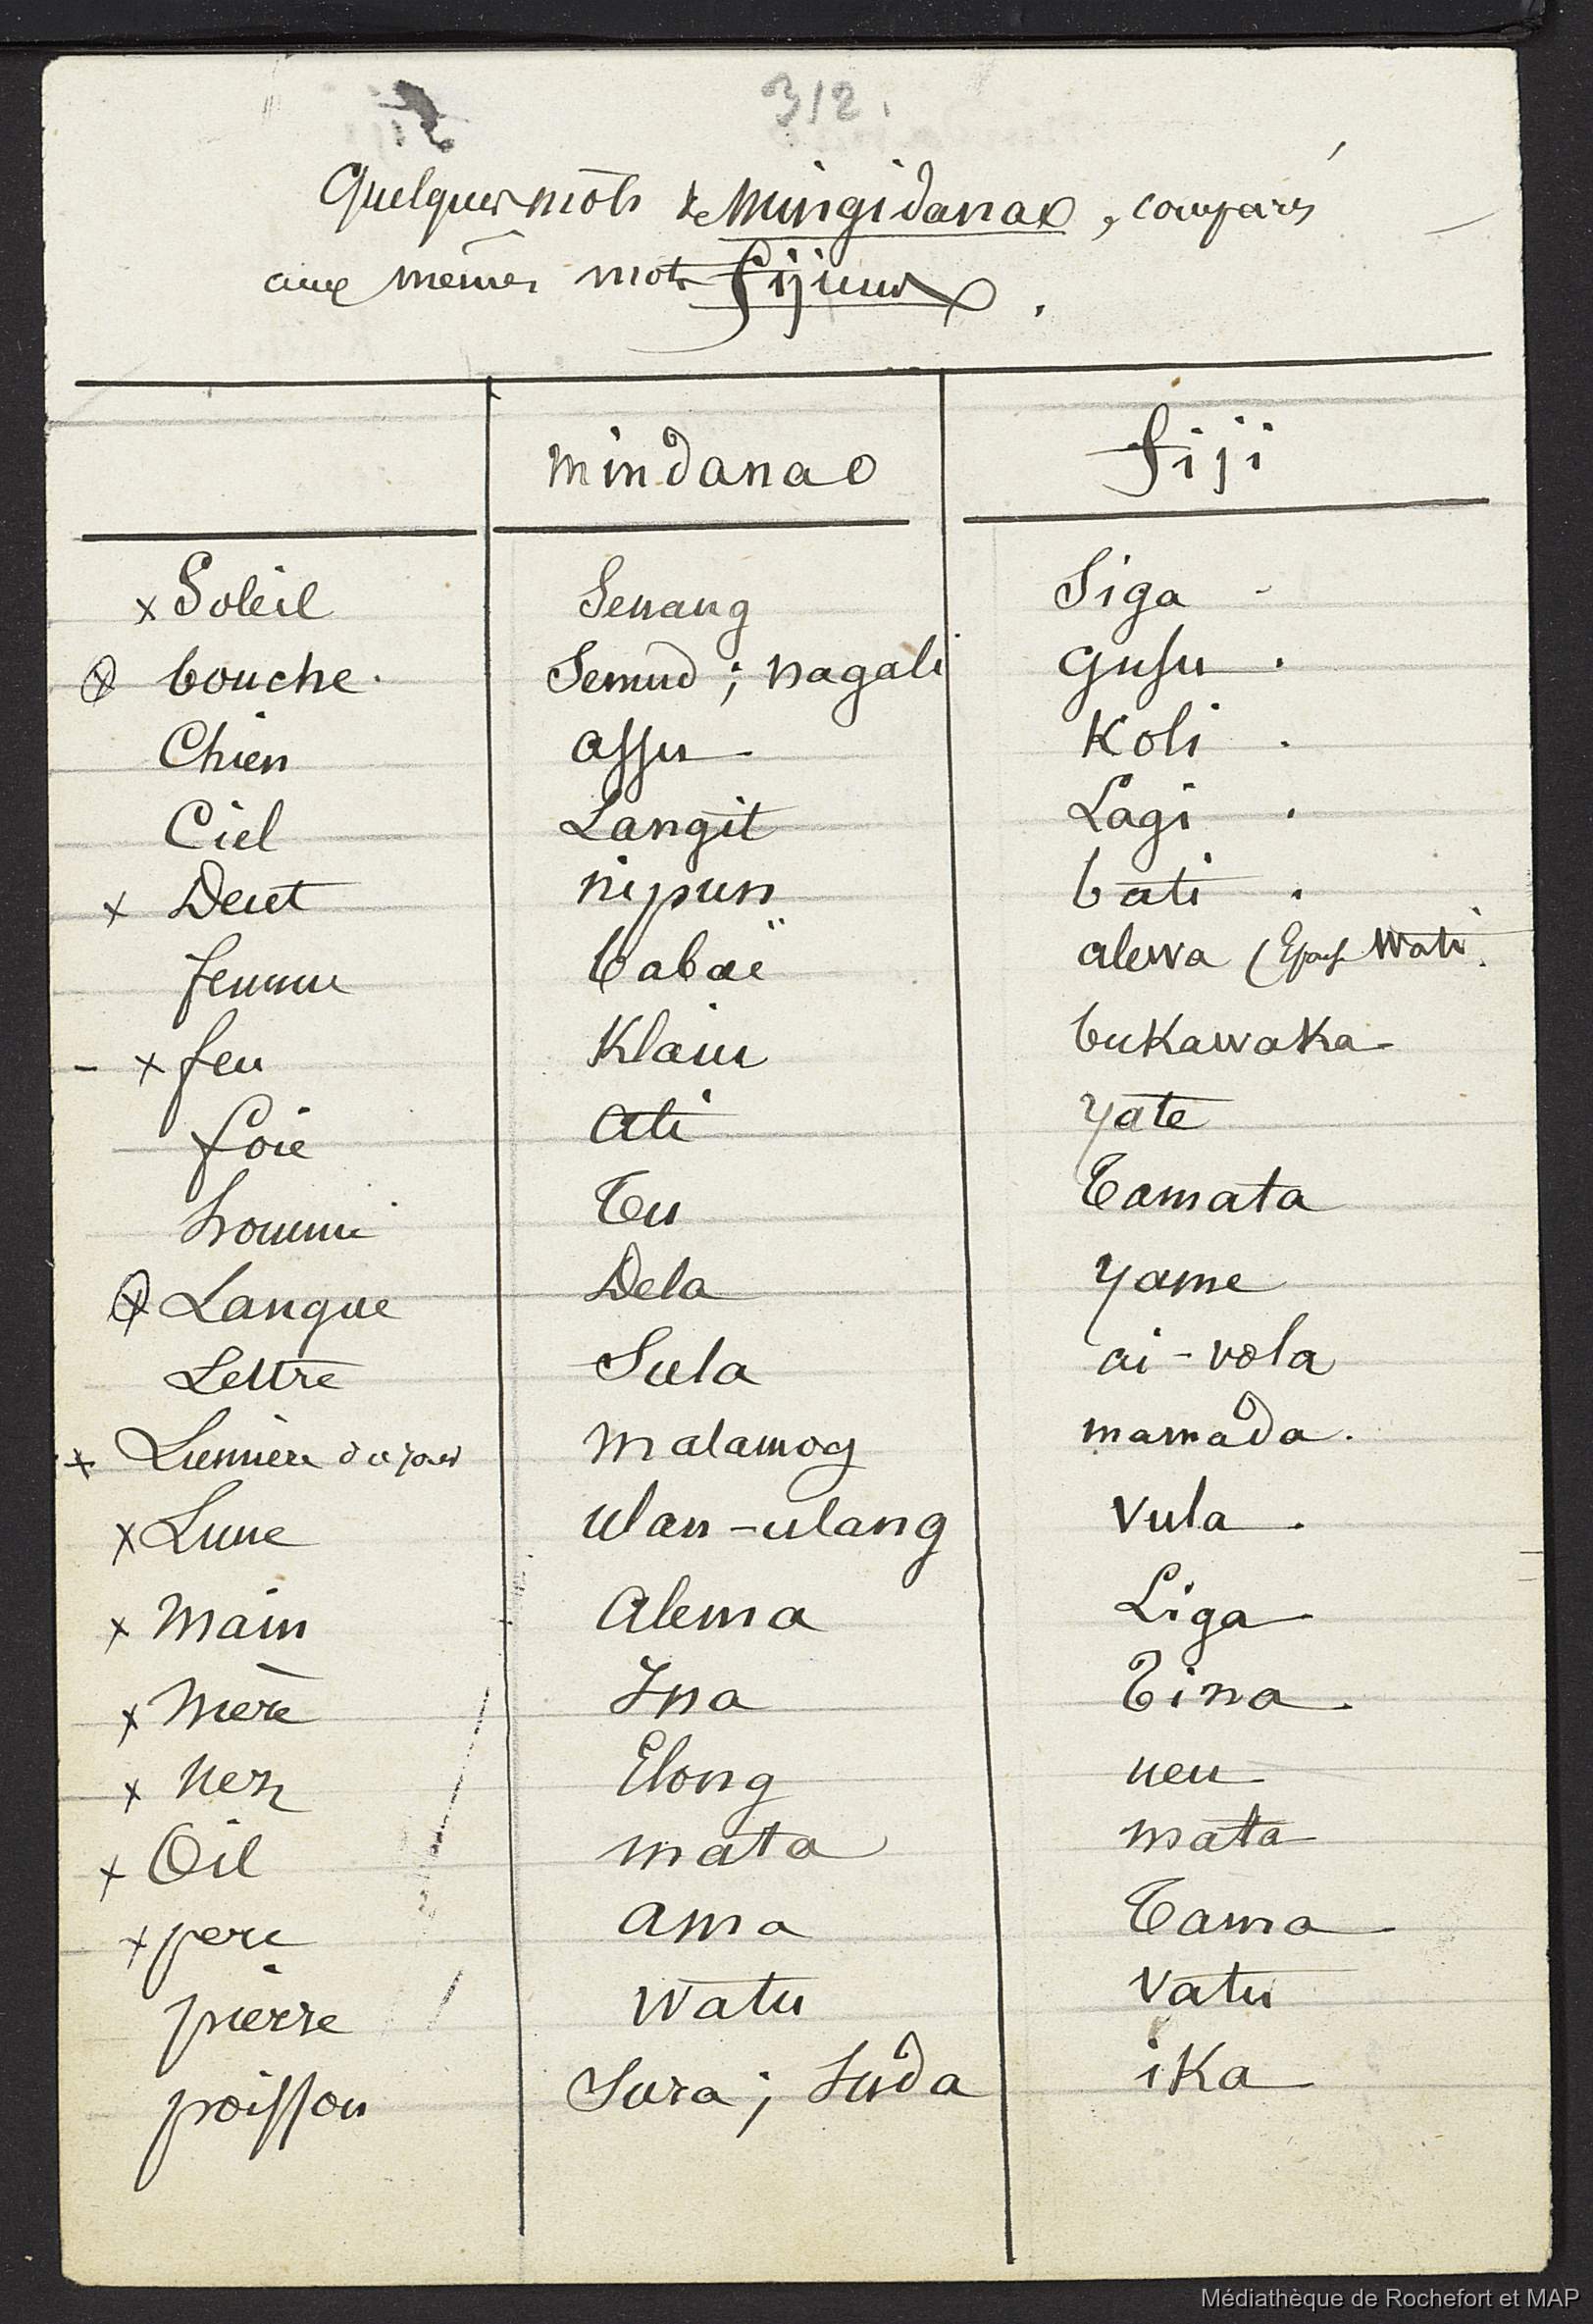 312.
Quelques mots de Mingidanao, comparés
aux mêmes mots fijiens.
Mindanao fiji
x Soleil Senang Siga
x bouche. Semud ; nagali gusu.
Chien assu Koli.
Ciel Langit Lagi.
x Dent nipun bati.
femme babaï alewa (Epouse Wati.
- x feu Klaiu bukawaka
foie ati yate
homme Tu Tamata
x Langue Dela yame
Lettre Sula ai-vola
x Lumière du jour malamog mamada.
x Lune ulan-ulang vula.
x main alema Liga
x mère Ina Tina.
x nez Elong ucu
x Oil mata mata
x pere ama Tama
pierre watu vatu
poisson Sura ; Suda ika
Médiathèque de Rochefort et MAP